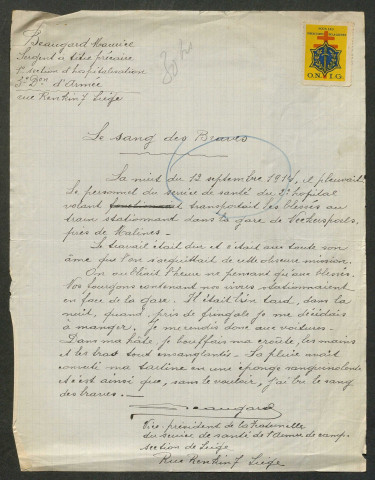 Beaugard Maurice
Sergent à titre précaire
1e section d'hospitalisation
3e Don d'Armée
rue Renkin 7 Liège
O.N.I.G.
Le sang des Braves
La nuit du 12 septembre 1914, il pleuvait.
Le personnel du service de santé du 2e hopital
volant transportait les blessés au
train stationnant dans la gare de
près de Malines -
Le travail était dur et c'était avec toute son
âme que l'on s'acquittait de cette obscure mission.
On oubliait l'heure ne pensant qu'aux blessés.
Nos fourgons contenant nos vivres stationnaient
en face de la gare. Il était bien tard, dans la
nuit, quand, pris de fringale je me décidais
à manger. Je me rendis donc aux voitures -
Dans ma hâte, je bouffais ma croûte, les mains
et les bras tout ensanglantés - La pluie avait
converti ma tartine en une éponge sanguinolente
et c'est ainsi que, sans le vouloir, j'ai bu le sang
des braves. -
Beaugard
Vice-président de la fraternelle
du service de santé de l'armée de camp.
section de Liège
Rue Renkin 7 Liège